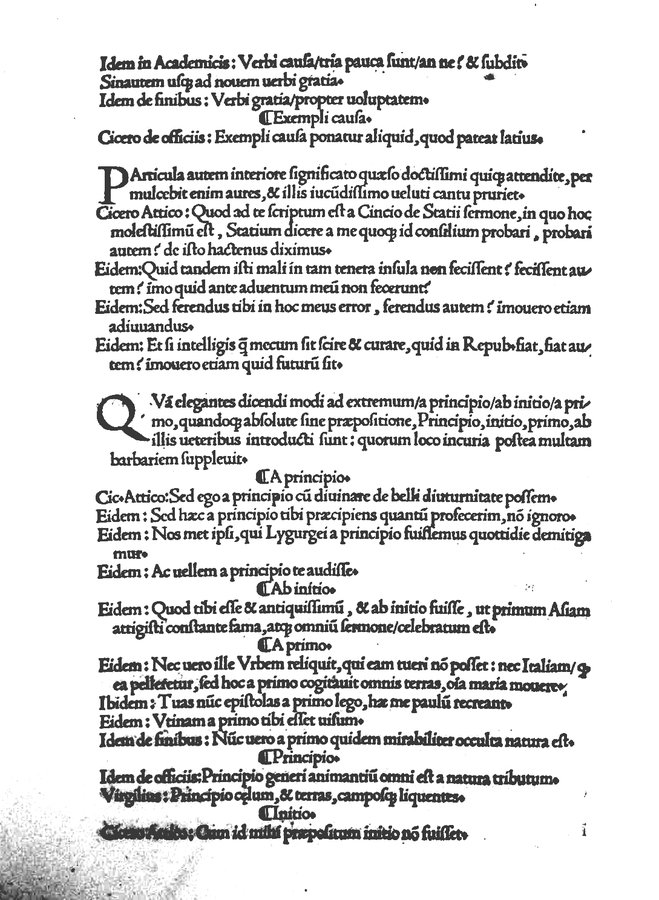 Idem in Academicis : Verbi cauſa/tria pauca ſunt/an ne ? & ſubdit.
Sinautem uſq; ad nouem uerbi gratia.
Idem de finibus : Verbi gratia/propter uoluptatem.
¶Exempli cauſa.
Cicero de officiis : Exempli cauſa ponatur aliquid,quod pateat latius.
PArticula autem interiore ſignificato quæſo doctiſſimi quiq; attendite,per
mulcebit enim aures,& illis iucūdiſſimo ueluti cantu pruriet.
Cicero Attico : Quod ad te ſcriptum eſt a Cincio de Statii ſermone,in quo hoc
moleſtiſſimū eſt , Statium dicere a me quoq; id conſilium probari , probari
autem ? de iſto hactenus diximus.
Eidem:Quid tandem iſti mali in tam tenera inſula non feciſſent ? feciſſent au⸗
tem ? imo quid ante aduentum meū non fecerunt?
Eidem:Sed ferendus tibi in hoc meus error , ferendus autem ? imouero etiam
adiuuandus.
Eidem: Et ſi intelligis q̄ mecum ſit ſcire & curare,quid in Repub.fiat,fiat au⸗
tem ? imouero etiam quid futurū ſit.
QVā elegantes dicendi modi ad extremum/a principio/ab initio/a pri⸗
mo,quandoq; abſolute ſine præpoſitione,Principio,initio,primo,ab
illis ueteribus introducti ſunt : quorum loco incuria poſtea multam
barbariem ſuppleuit.
¶A principio.
Cic.Attico:Sed ego a principio cū diuinare de belli diuturnitate poſſem.
Eidem : Sed hæc a principio tibi præcipiens quantū profecerim,nō ignoro.
Eidem : Nos met ipſi,qui Lygurgei a principio fuiſſemus quottidie demitiga
mur.
Eidem : Ac uellem a principio te audiſſe.
¶Ab initio.
Eidem : Quod tibi eſſe & antiquiſſimū , & ab initio fuiſſe , ut primum Aſiam
attigiſti conſtante fama,atq; omniū ſermone/celebratum eſt.
¶A primo.
Eidem : Nec uero ille Vrbem reliquit,qui eam tueri nō poſſet : nec Italiam/ ꝙ
ea pelleretur,ſed hoc a primo cogitauit omnis terras,oīa maria mouere.
Ibidem : Tuas nūc epiſtolas a primo lego,hæ me paulū recreant.
Eidem : Vtinam a primo tibi eſſet uiſum.
Idem de finibus : Nūc uero a primo quidem mirabiliter occulta natura eſt.
¶Principio.
Idem de officiis:Principio generi animantiū omni eſt a natura tributum.
Virgilius : Principio cęlum,& terras, campoſq; liquentes.
¶Initio.
Cicero Attico : Cum id mihi præpoſitum initio nō fuiſſet.
i